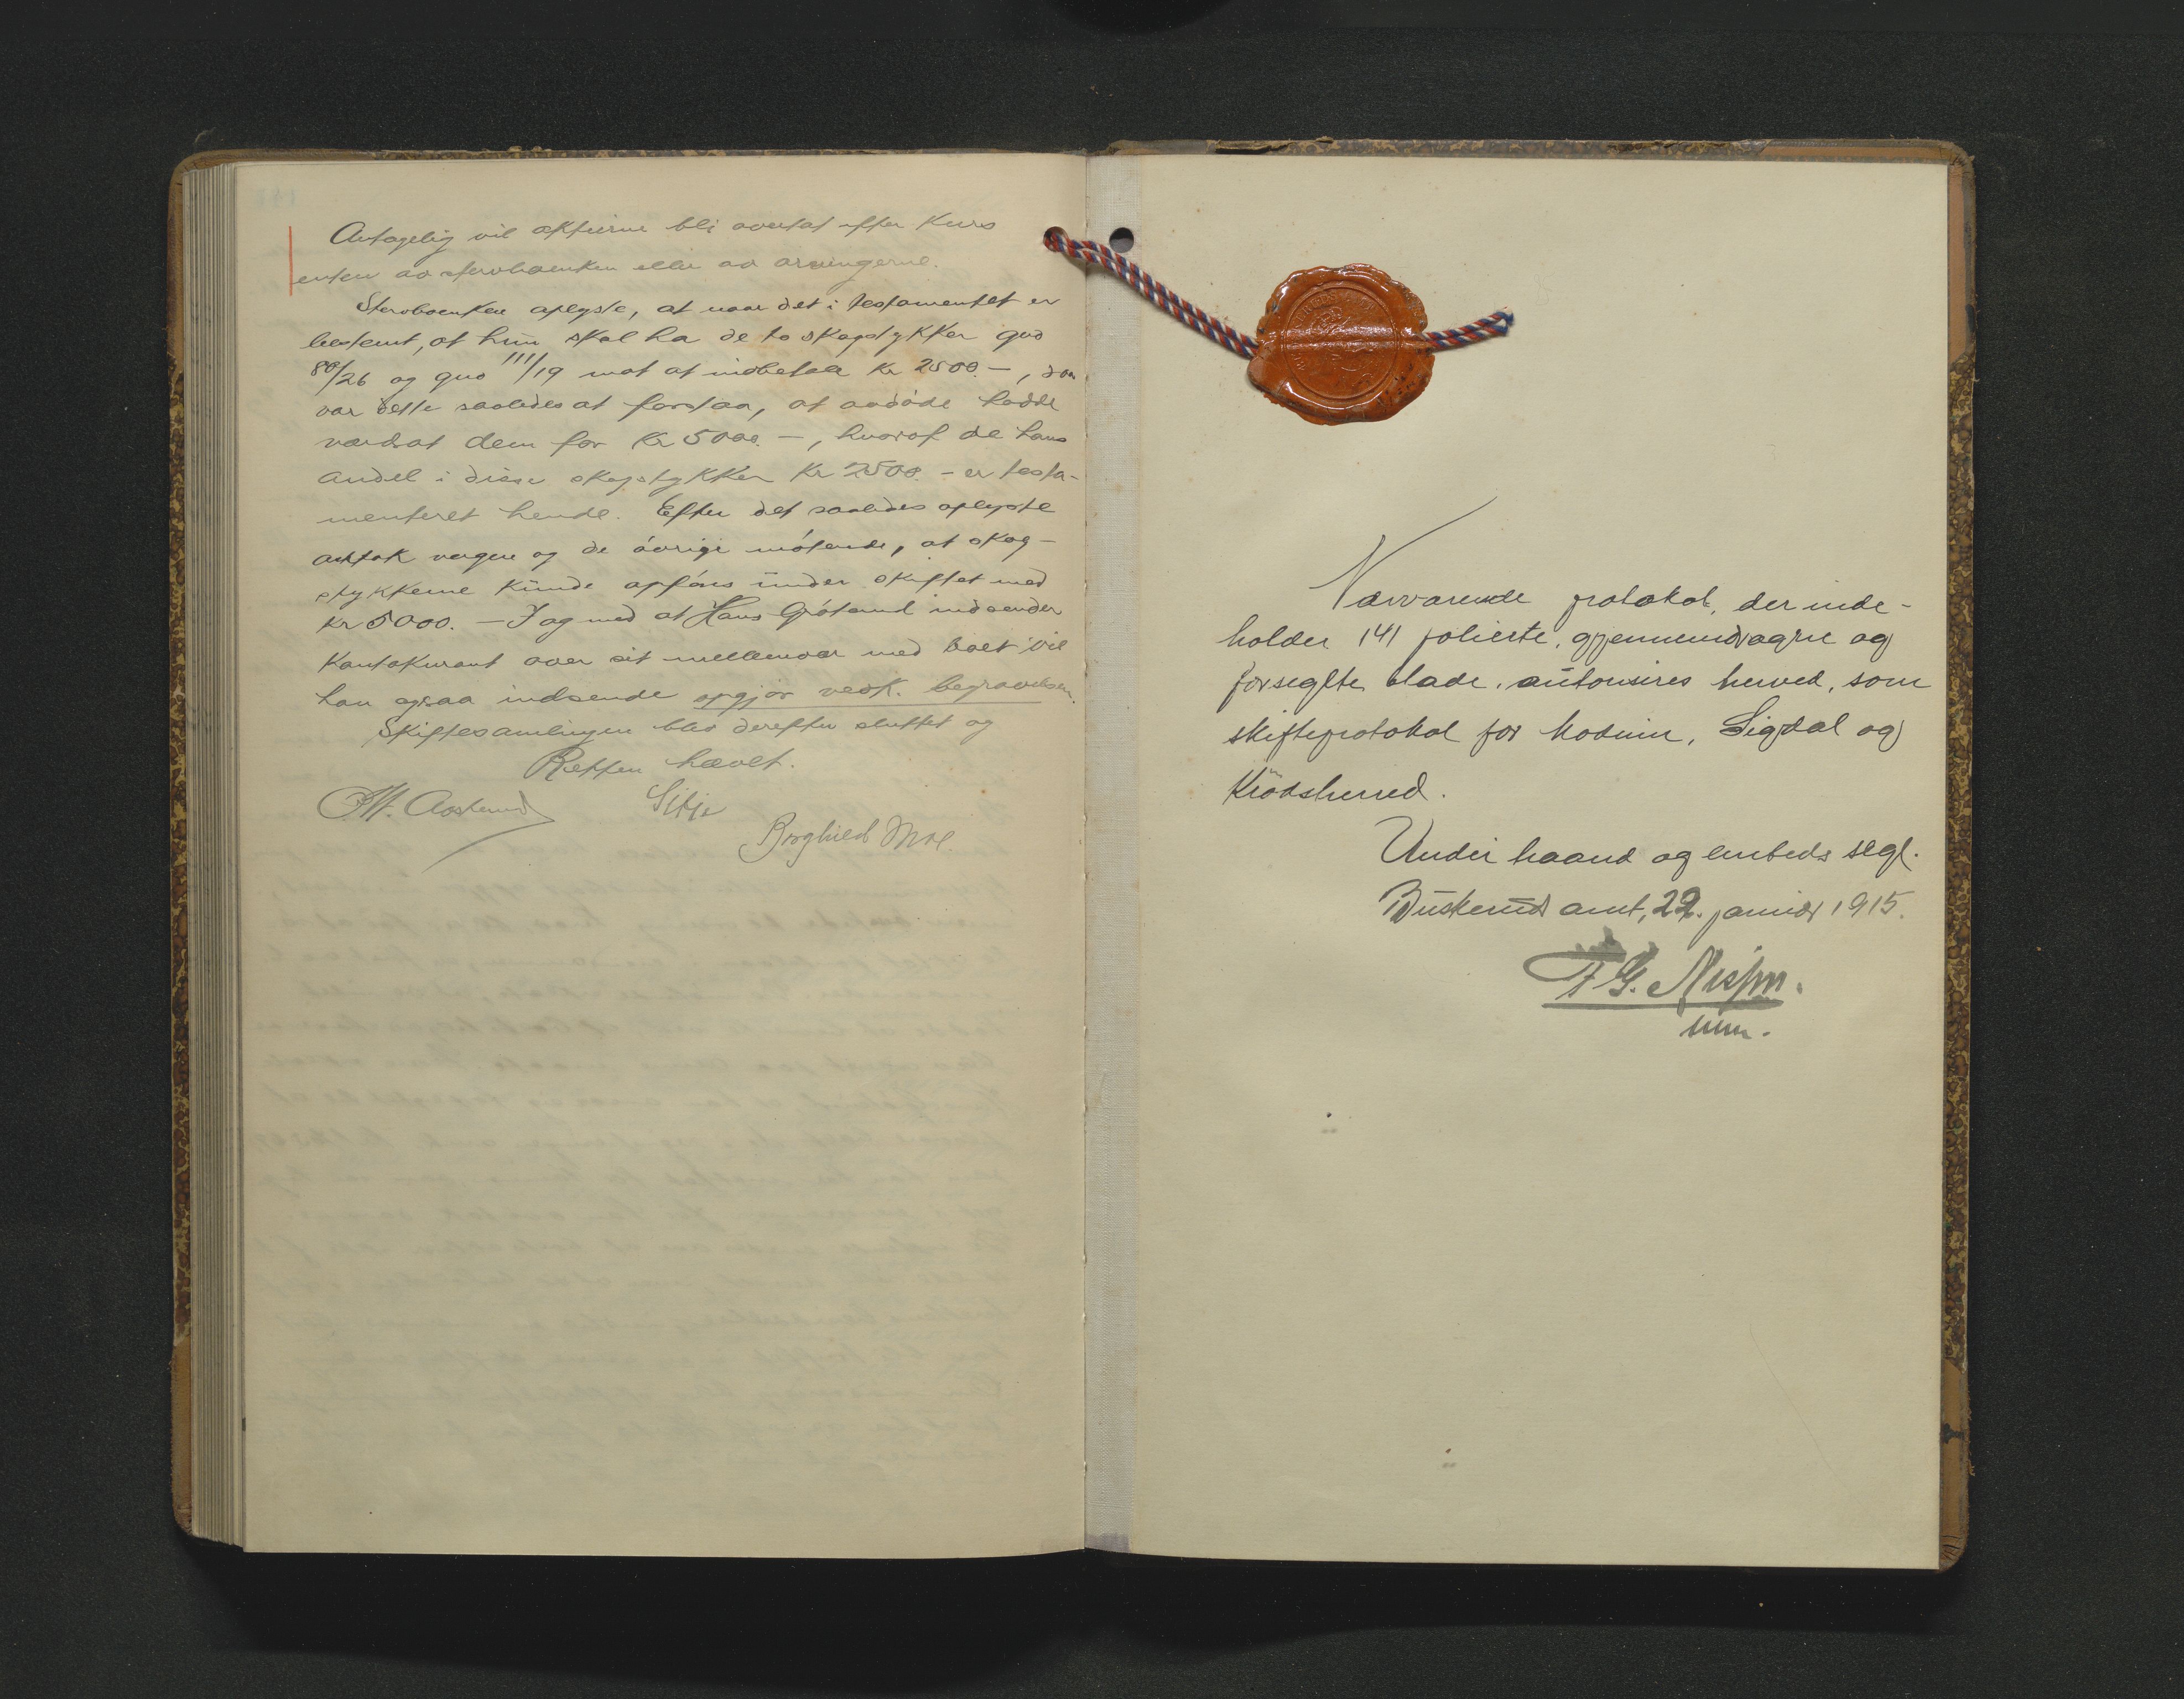 Antagelig vil aktierne bli overtat efter kurs
enten av sterboenken eller av arvingerne.
Sterboenken oplyste, at naar det i testamentet er
bestemt, at hun skal ha de to skogstykker gno
80/26 og gno 111/19 mot at indbetale kr 2500.-, saa
var dette saaledes at forstaa, at avdøde hadde
værdsat dem for kr 5000.-, hvorof de hans
andel i disse skogstykker kr 2500.- er testa-
menteret hende. Efter det saaledes oplyste
antok vergen og de øvrige møtende, at skog-
stykkerne kunde opføres under skiftet med
kr 5000.- I og med at Hans Grøtand indsender
kontokurant over sit mellemvær med boet vil
han ogsaa indsende opgjør vedk. begravelsen.
Skiftesamlingen blev derefter sluttet og
Retten hævet.
Aaslund
Borghild Moe.
Nærværende protokol, der inde-
holder 141 folierte, gjennemdragne og
forseglte blade, autoriseres herved, som
skifteprotokol for Modum, Sigdal og
Krødsherred.
Under haand og embeds segl.
Buskerud amt, 22. januar 1915.
G. Nissen.